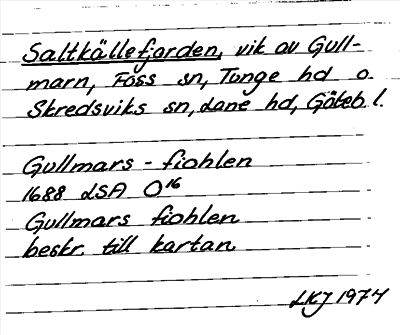 Saltkällefjorden, vik av Gull-
marn, Foss sn, Tunge hd o.
Skredsviks sn, Lane hd, Göteb. l.
Gullmars - fiohlen
1688 LSA O16
Gullmars fiohlen
beskr. till kartan
LKJ 1974